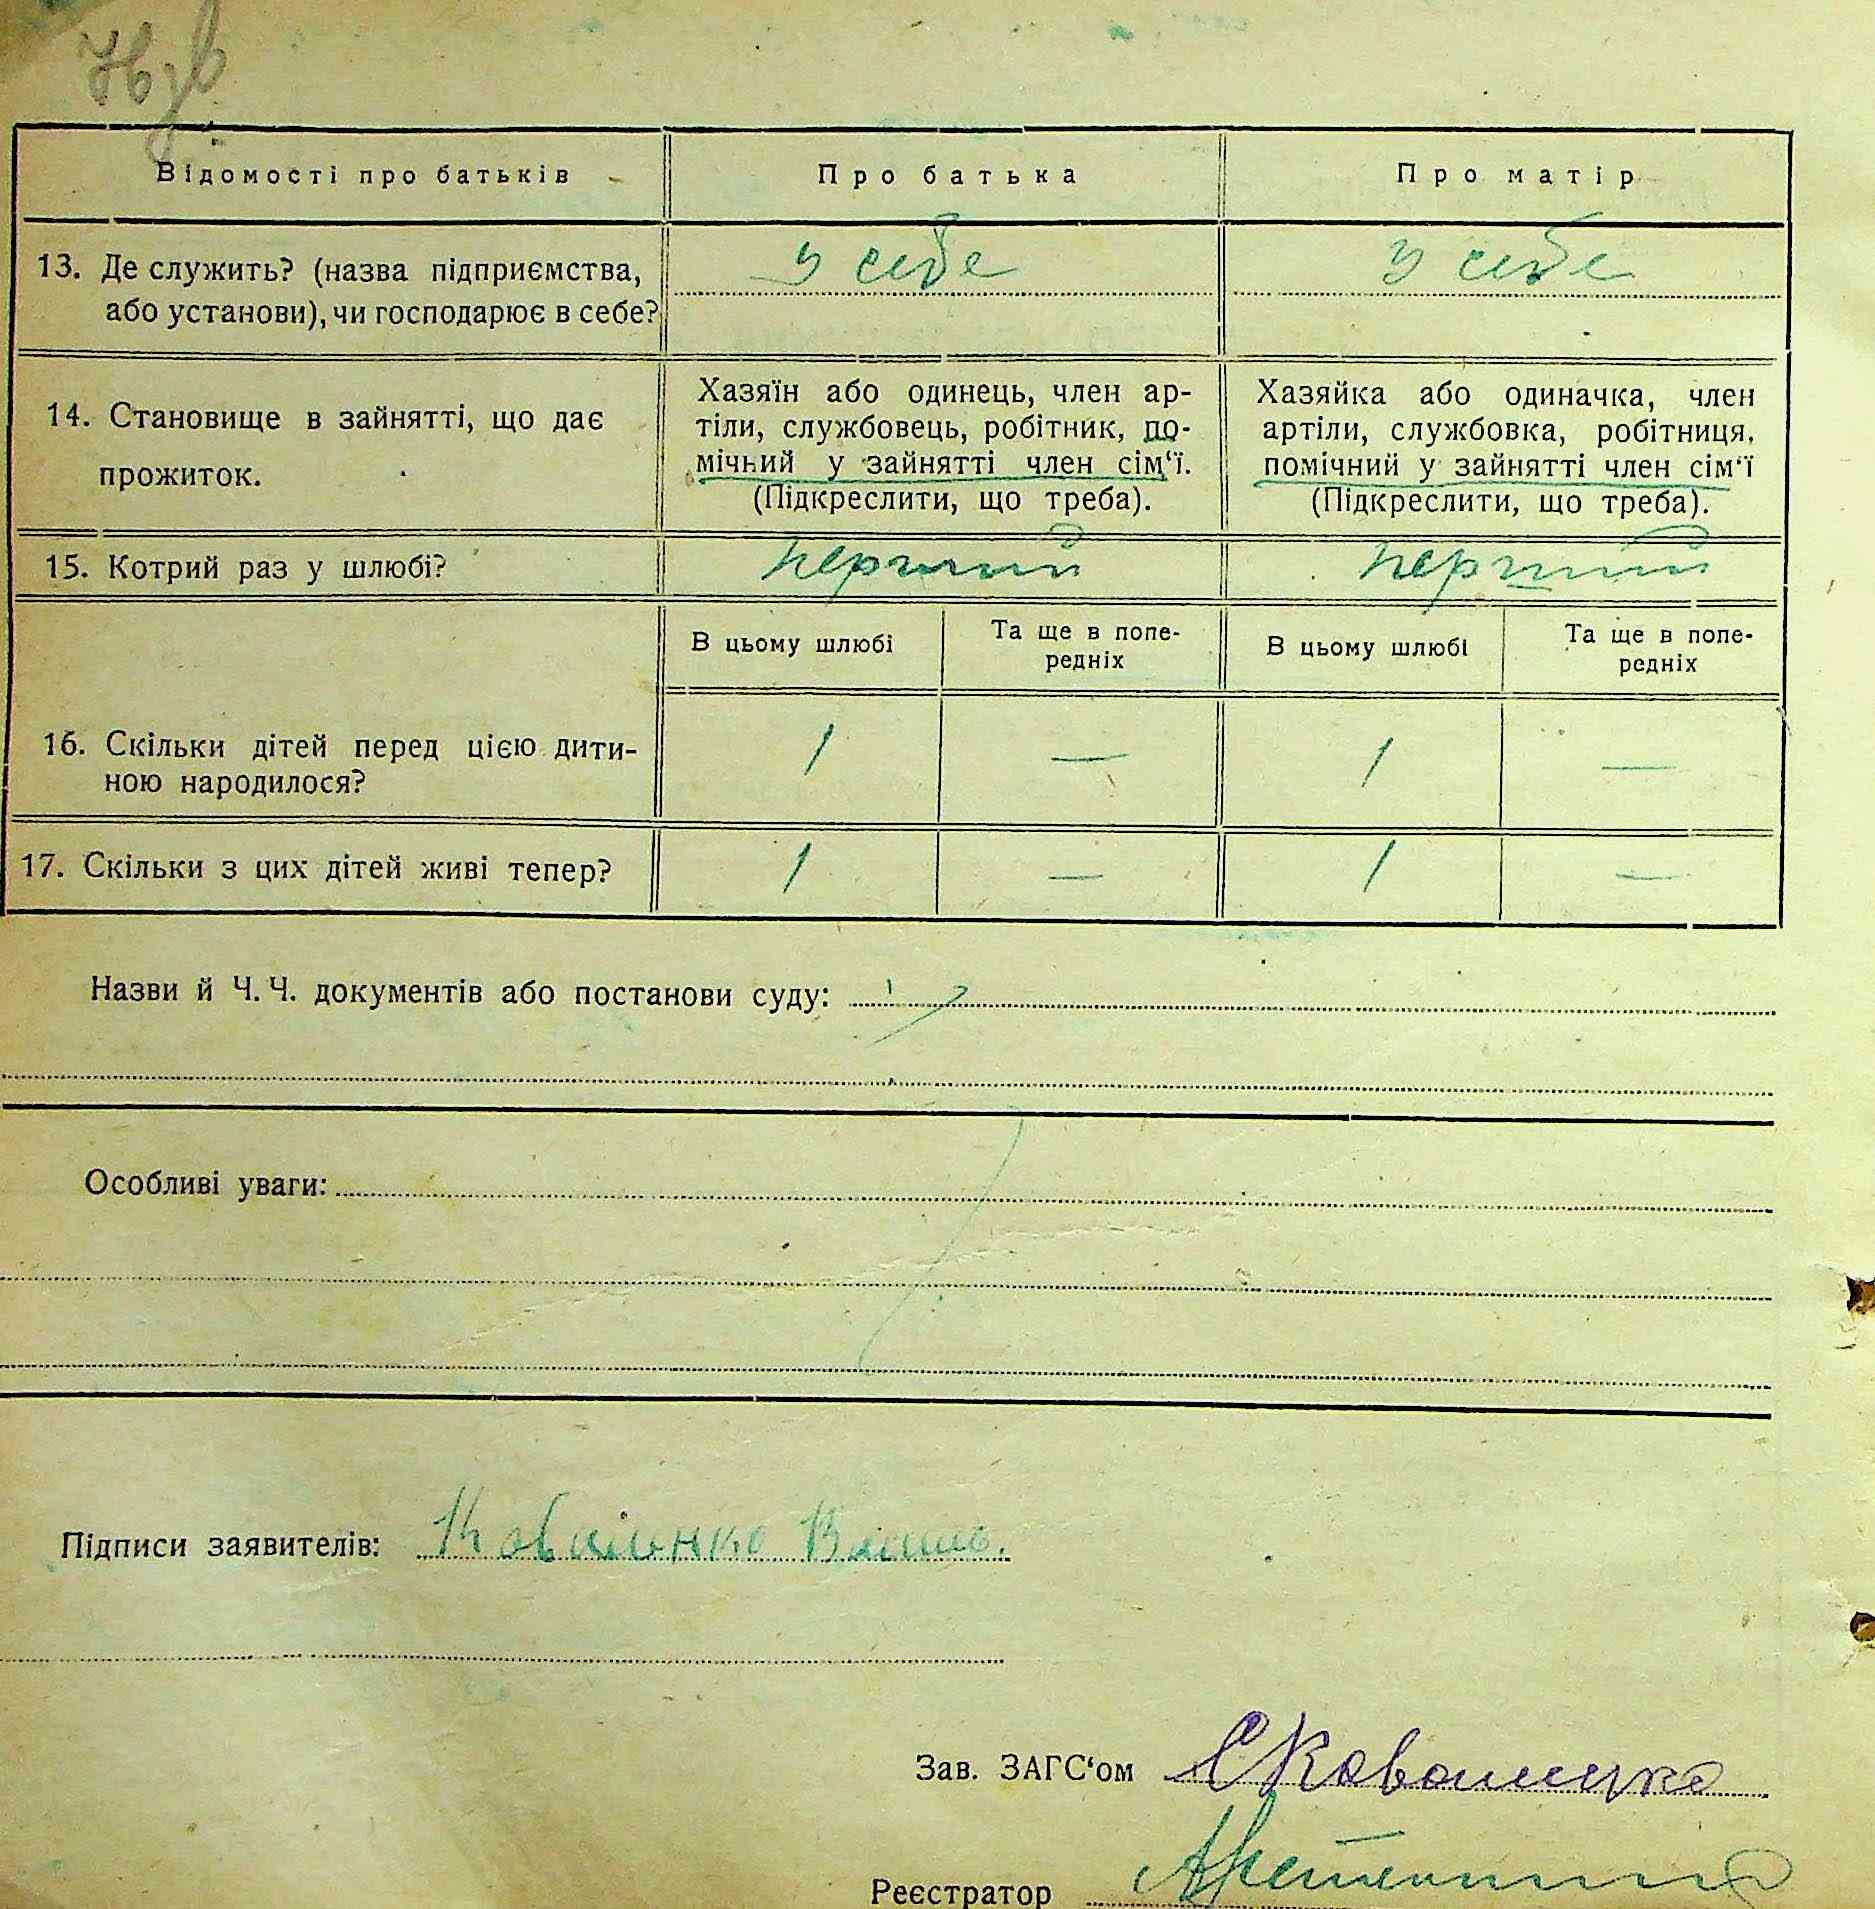 Відомості про батьків Про батька Про матір
13. Де служить? (назва підприємства, або установи), чи господарює в себе?
у себе у себе
14. Становище в зайнятті, що дає прожиток.
Хазяїн або одинець, член ар-
тіли, службовець, робітник, по-
мічний у зайнятті член сім‘ї.
(Підкреслити, що треба).
Хазяйка або одиначка, член
артіли, службовка, робітниця,
помічний у зайнятті член сім‘ї
(Підкреслити, що треба).
15. Котрий раз у шлюбі? перший перший
В цьому шлюбі Та ще в попе-
редніх
В цьому шлюбі Та ще в попе-
редніх
16. Скільки дітей перед цією дити-
ною народилося?
1 — 1 —
17. Скільки з цих дітей живі тепер? 1 — 1 —
Назви й Ч. Ч. документів або постанови суду:
Особливі уваги:
Підписи заявителів: Коваленко
Зав. ЗАГС‘ом
Реєстратор